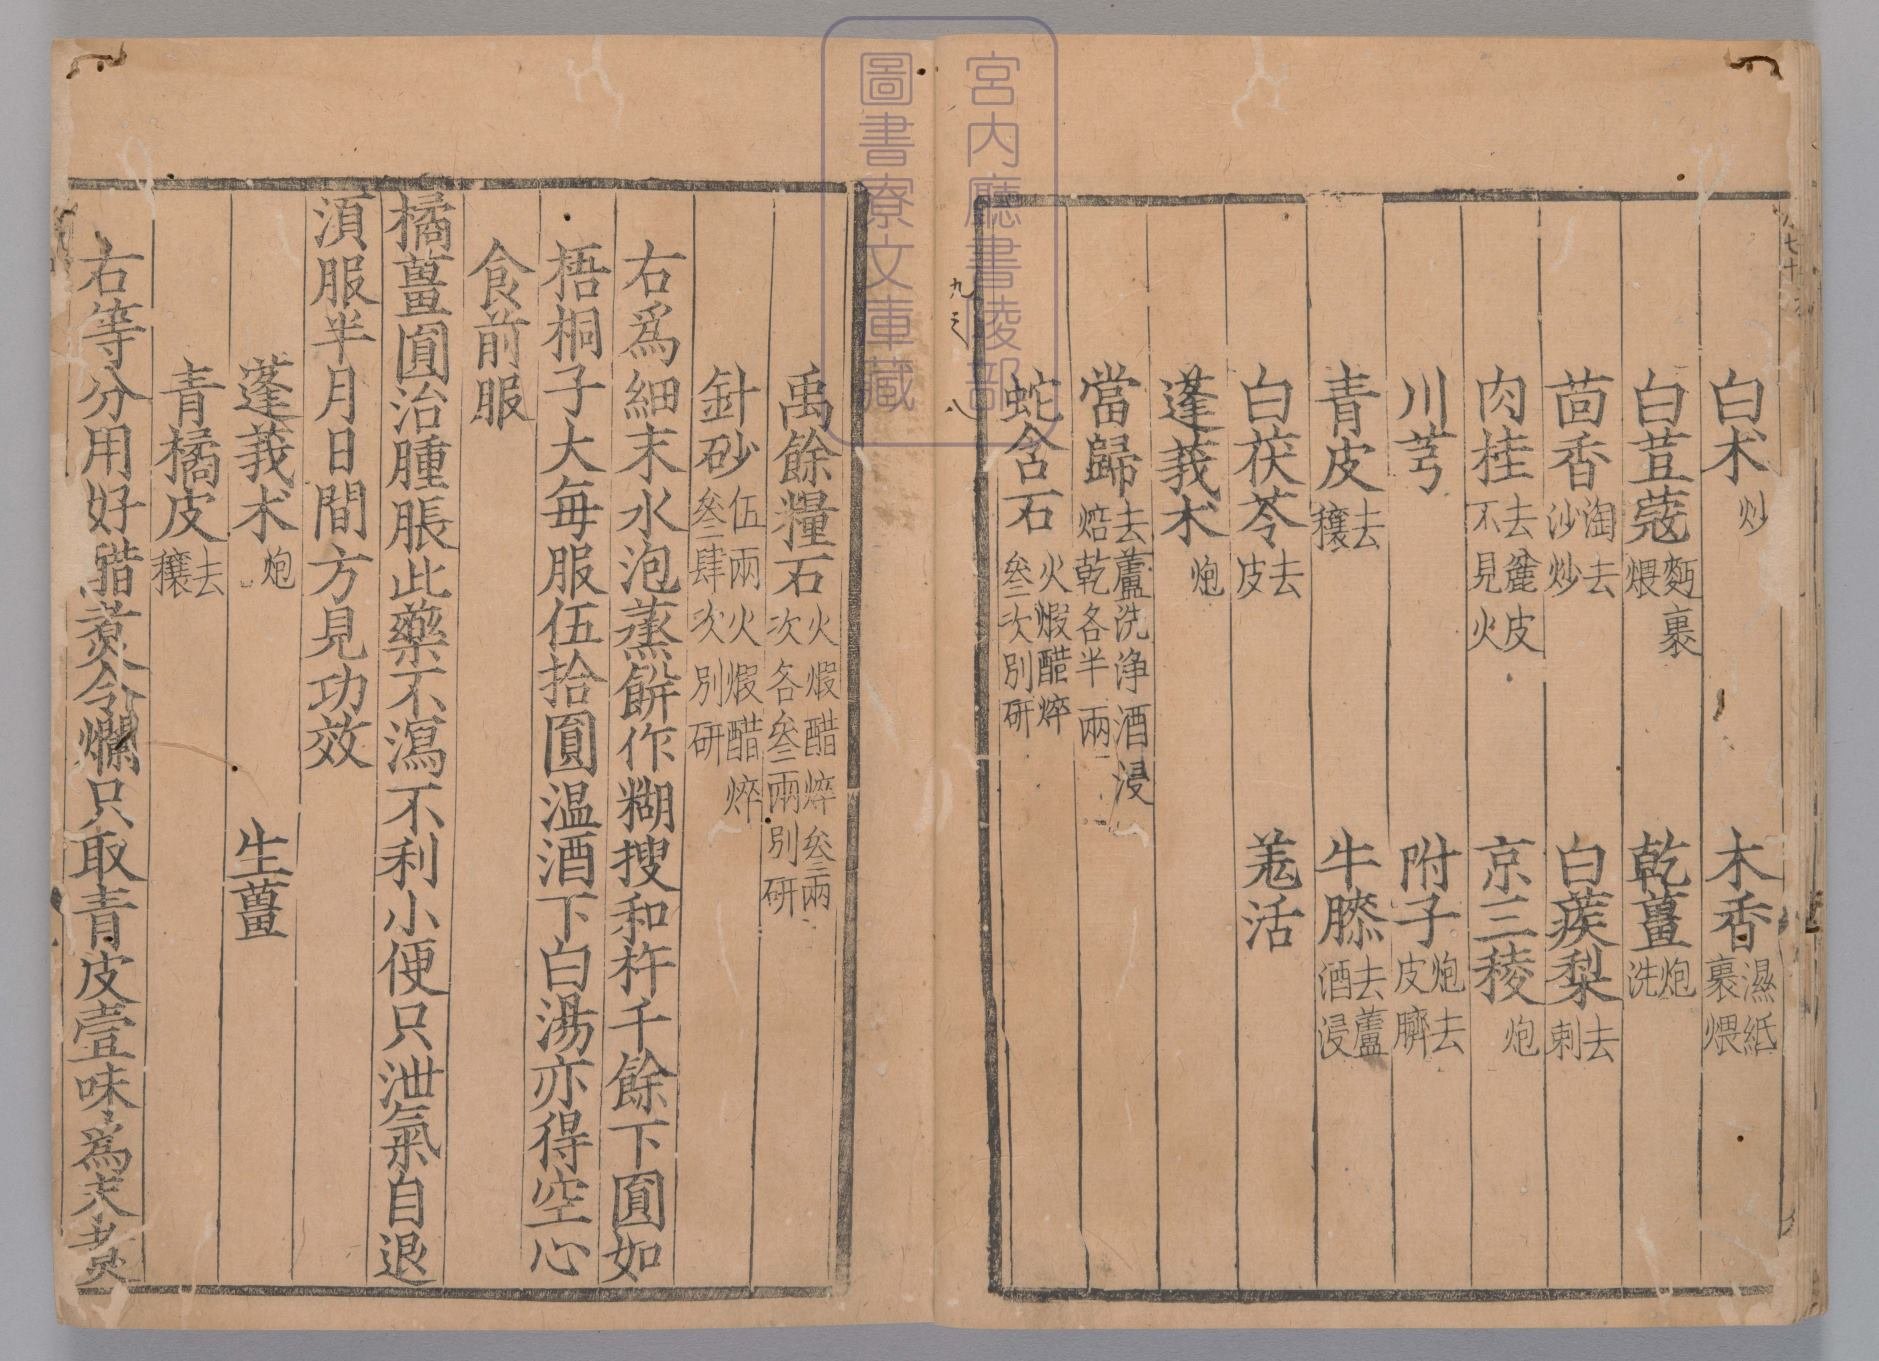 白朮炒 木香濕紙裹煨
白荳蔻麪裹煨 乾薑炮洗
茴香淘去沙炒 白蒺梨去刺
肉桂去麄皮不見火 京三稜炮
川芎 附子炮去皮臍
青皮去穰 牛膝去蘆酒浸
白茯苓去皮 羗活
蓬莪朮炮
當歸去蘆洗浄酒浸焙乾各半兩
蛇含石火煆醋焠叄次別研
禹餘糧石火煆醋焠叄兩次各叄兩別研
針砂伍兩火煆醋焠叄肆次別研
右爲細末水泡蒸餅作糊搜和杵千餘下圓如
梧桐子大每服伍拾圓温酒下白湯亦得空心
食前服
橘薑圓治腫脹此藥不瀉不利小便只泄氣自退
湏服半月日間方見功效
蓬莪朮炮 生薑
青橘皮去穰
右等分用好醋煮令爛只取青皮壹味爲末
九之八
宮内廳書陵部
圖書寮文庫藏